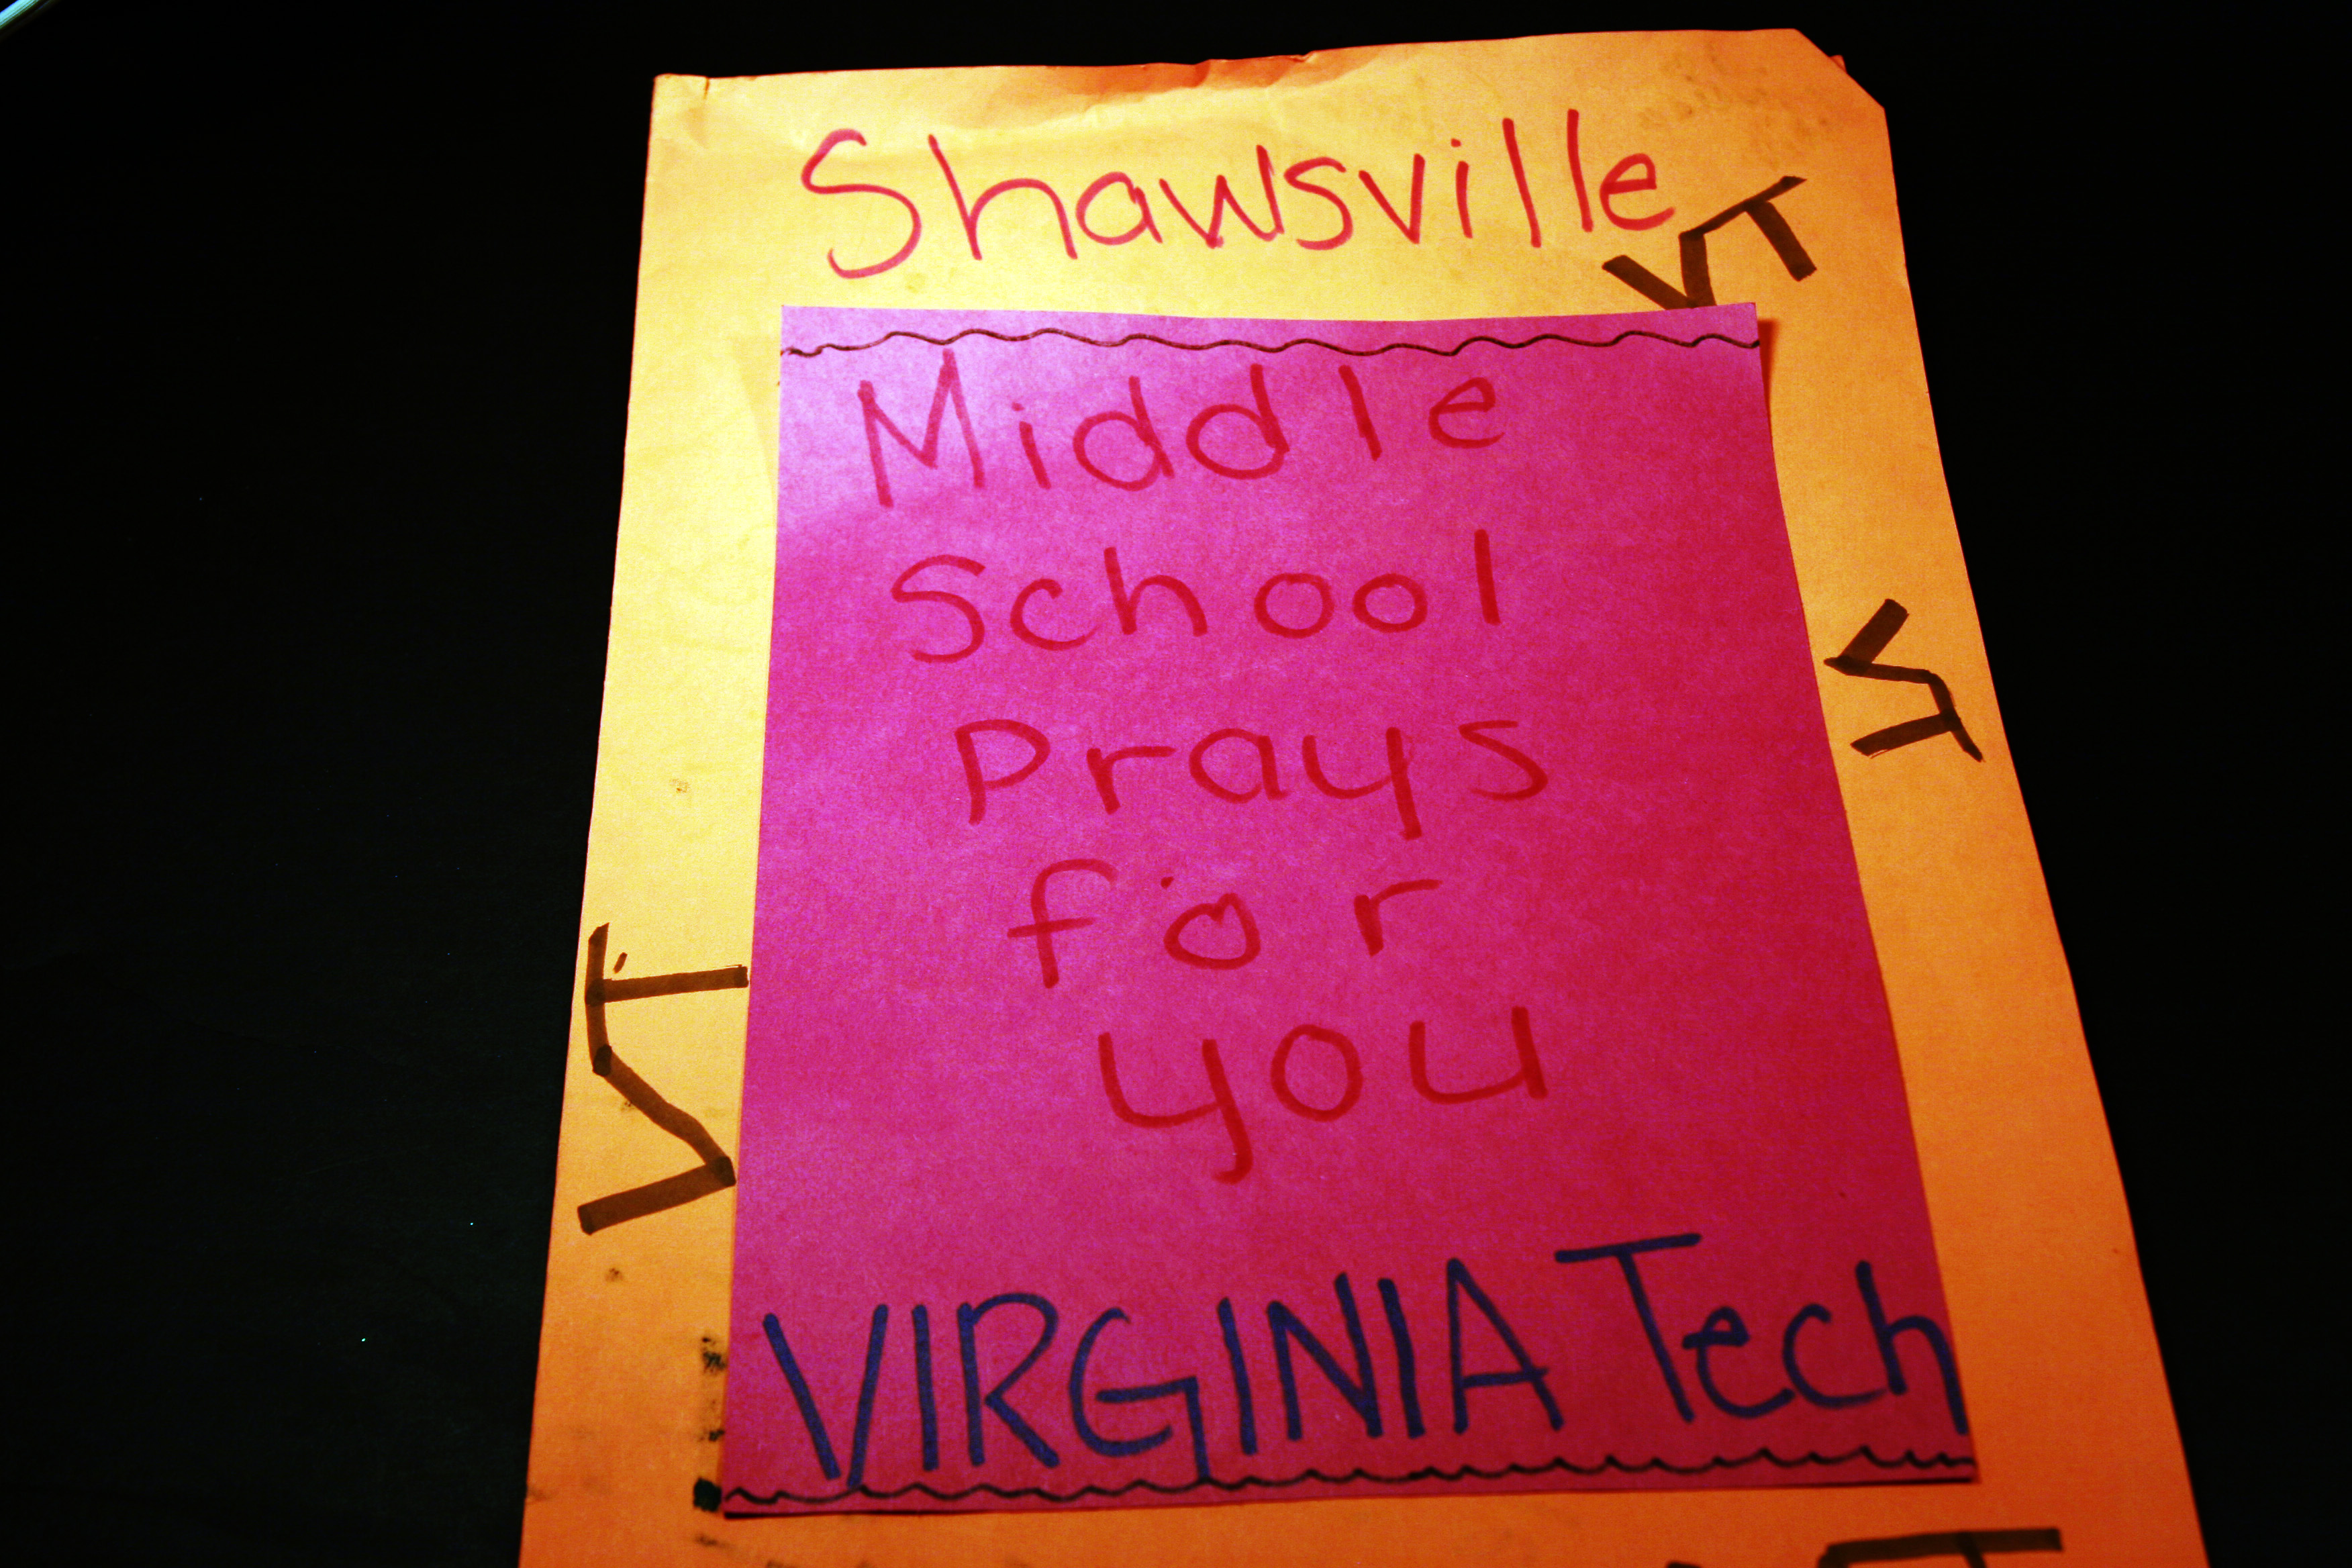 Shawsville
VT
Middle
School
Prays
VT
for
you
VT
VIRGINIA Tech